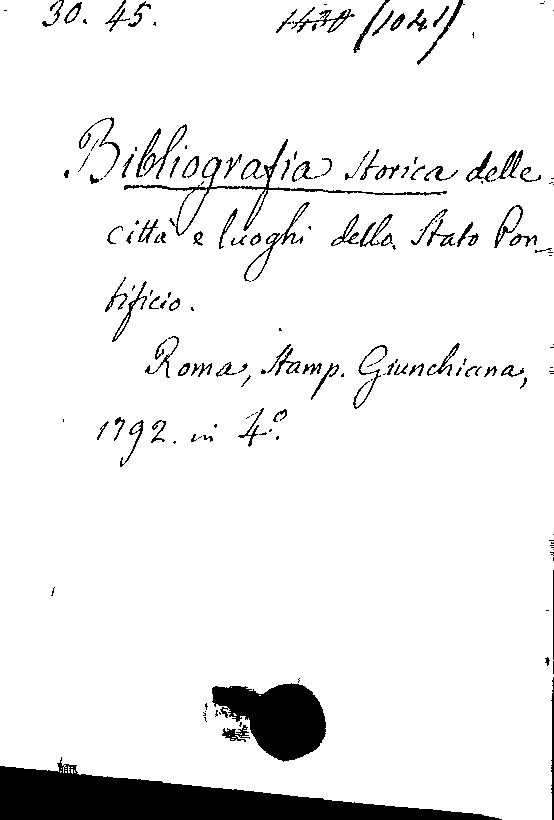 30. 45. 1430 (1041)
Bibliografia storica delle
città e luoghi dello Stato Pon-
tificio.
Roma, Stamp. Giunchiana,
1792. in 4°.